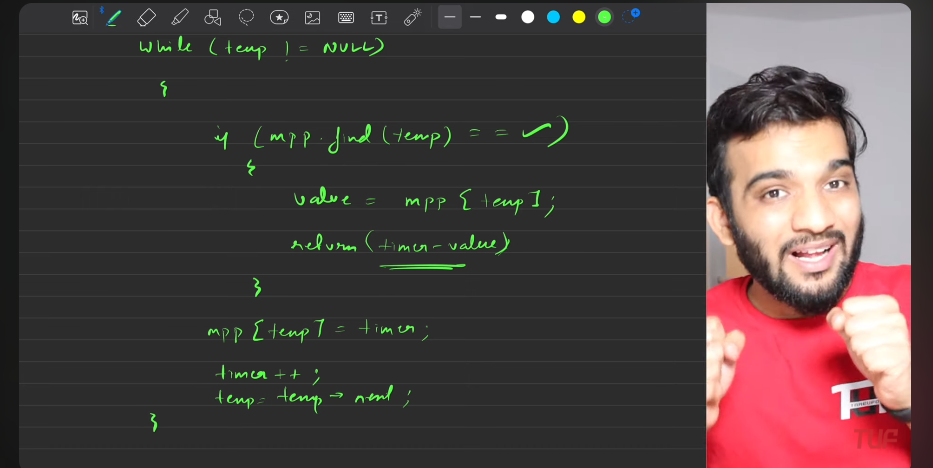 while (temp != NULL)
{
if (mpp.find(temp) == ✓)
{
value = mpp[temp];
return (timer - value)
}
mpp[temp] = timer;
timer++;
temp = temp → next;
}
TUF